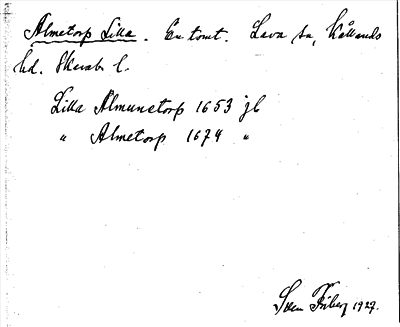 Almetorp Lilla. En tomt. Lava sn, Kållands
hd. Skarab. l.
Lilla Almunetorp 1653 jb
" Almetorp 1674 "
Sven Friberg 1927.